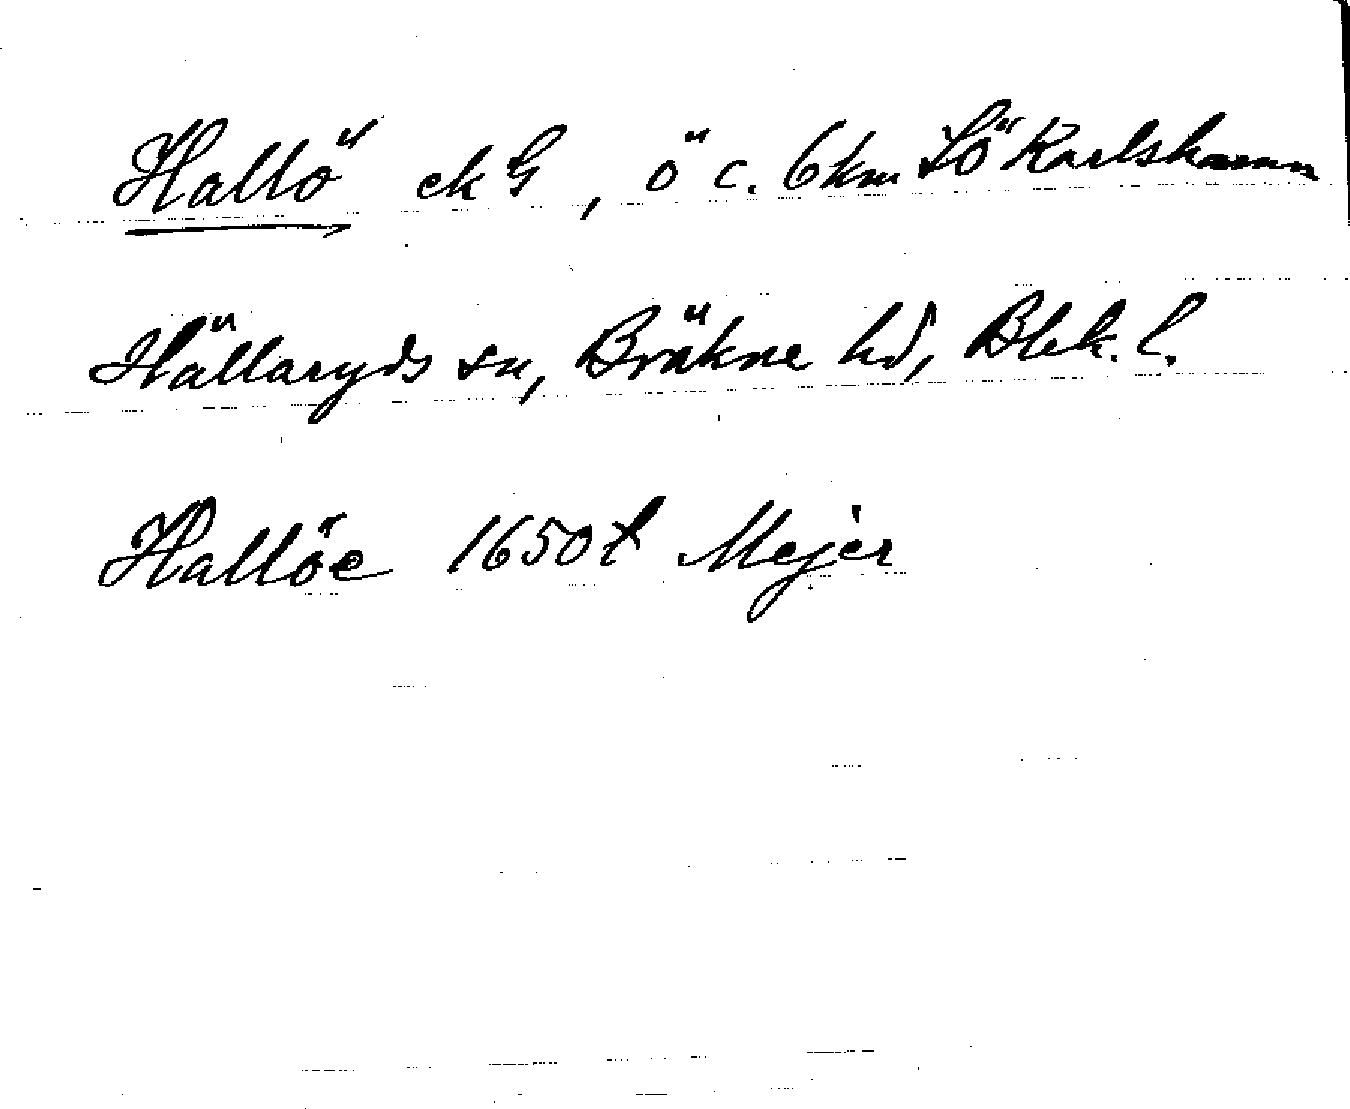 Hallö ek G, ö c. 6 km SÖ Karlshamn
Hällaryds sn, Bräkne hd, Blek. l.
Hallöe 1650 t Mejer